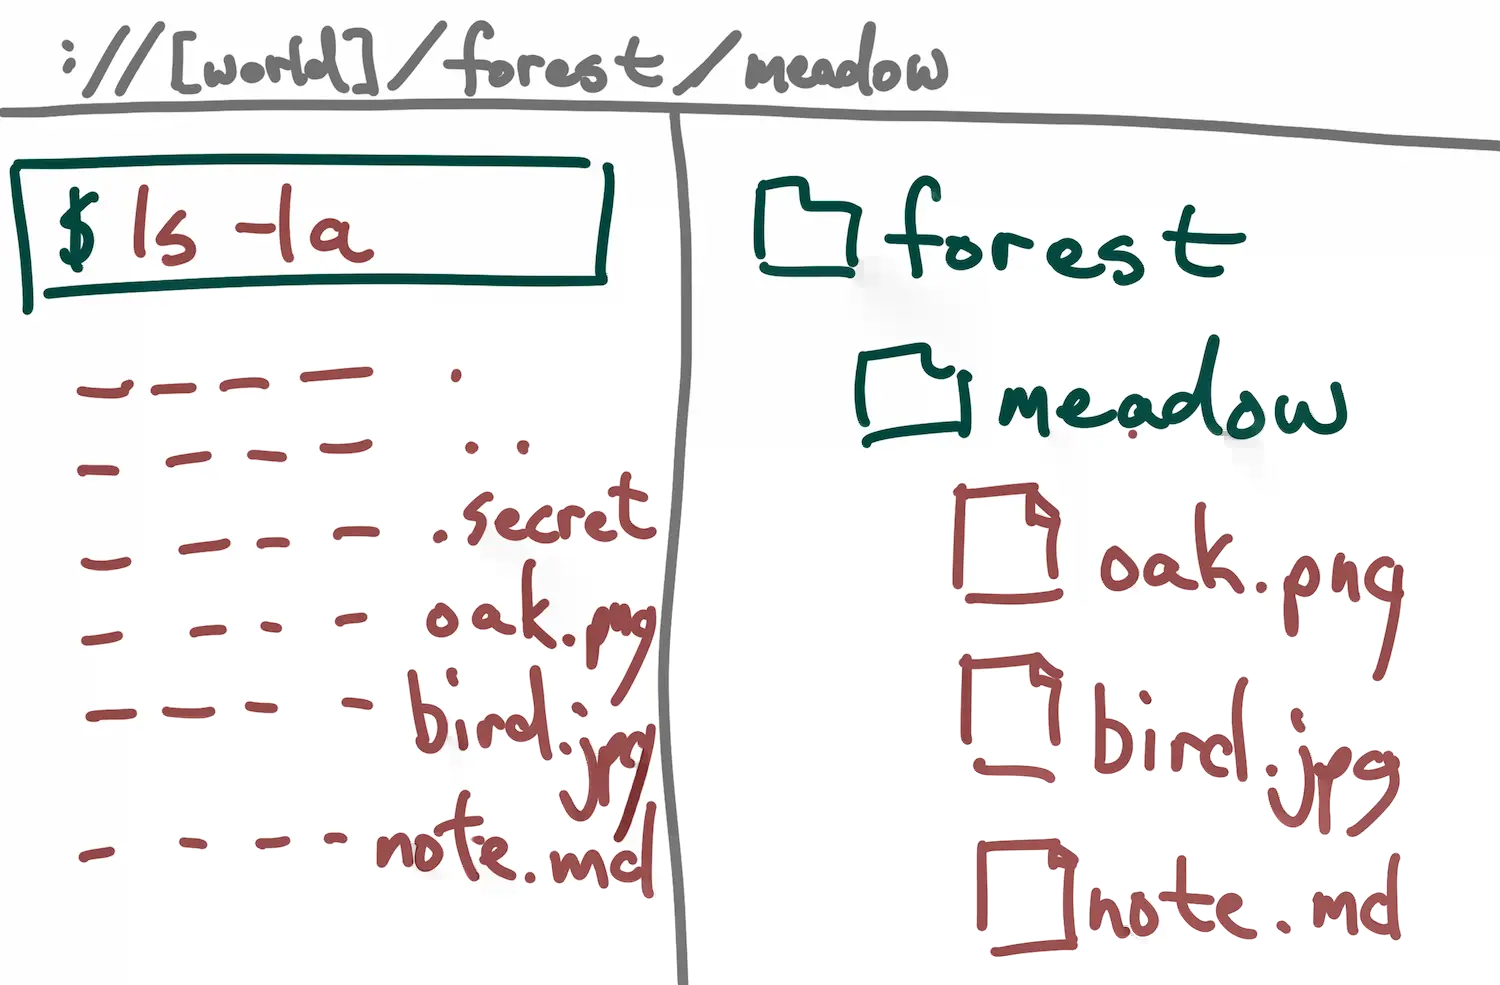 ://[world]/forest/meadow
$ ls -la
.
..
.secret
oak.png
bird.jpg
note.md
forest
meadow
oak.png
bird.jpg
note.md